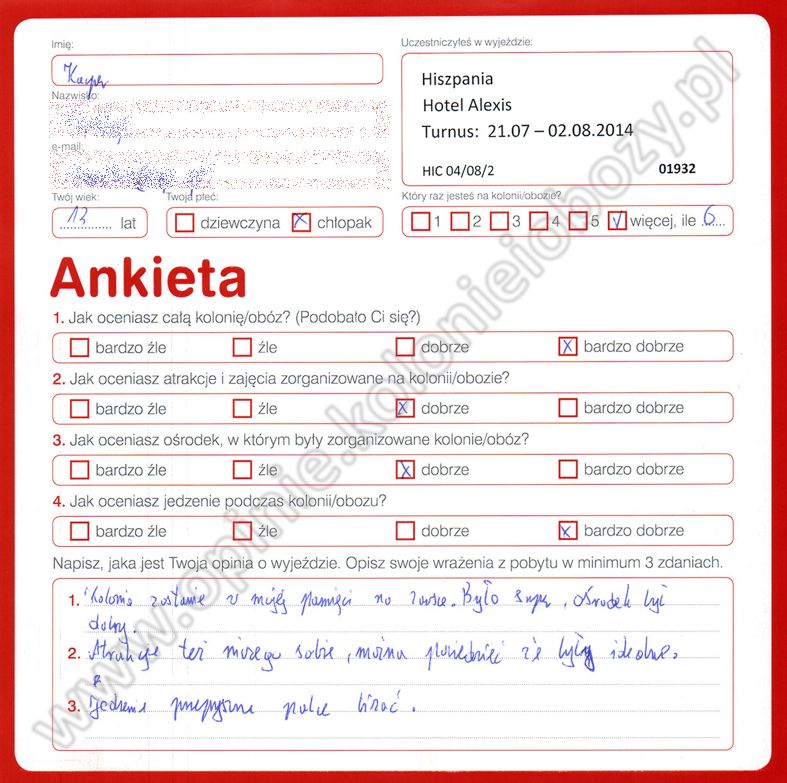 Imię:
Kacper
Nazwisko:
e-mail
Twój wiek:
12 lat
Twoja płeć:
dziewczyna chłopak
Uczestniczyłeś w wyjeździe:
Hiszpania
Hotel Alexis
Turnus: 21.07 – 02.08.2014
HIC 04/08/2 01932
Który raz jesteś na kolonii/obozie?
1 2 3 4 5 więcej, ile 6
Ankieta
1. Jak oceniasz całą kolonię/obóz? (Podobało Ci się?)
bardzo źle źle dobrze bardzo dobrze
2. Jak oceniasz atrakcje i zajęcia zorganizowane na kolonii/obozie?
bardzo źle źle dobrze bardzo dobrze
3. Jak oceniasz ośrodek, w którym były zorganizowane kolonie/obóz?
bardzo źle źle dobrze bardzo dobrze
4. Jak oceniasz jedzenie podczas kolonii/obozu?
bardzo źle źle dobrze bardzo dobrze
Napisz, jaka jest Twoja opinia o wyjeździe. Opisz swoje wrażenia z pobytu w minimum 3 zdaniach.
1. Kolonia zostanie w mojej pamięci na zawsze. Było super, ośrodek był
dobry.
2. Atrakcje też niczego sobie, można powiedzieć że były idealne.
3. Jedzenie przepyszne palce lizać.
www.opinie.kolonieiobozy.pl